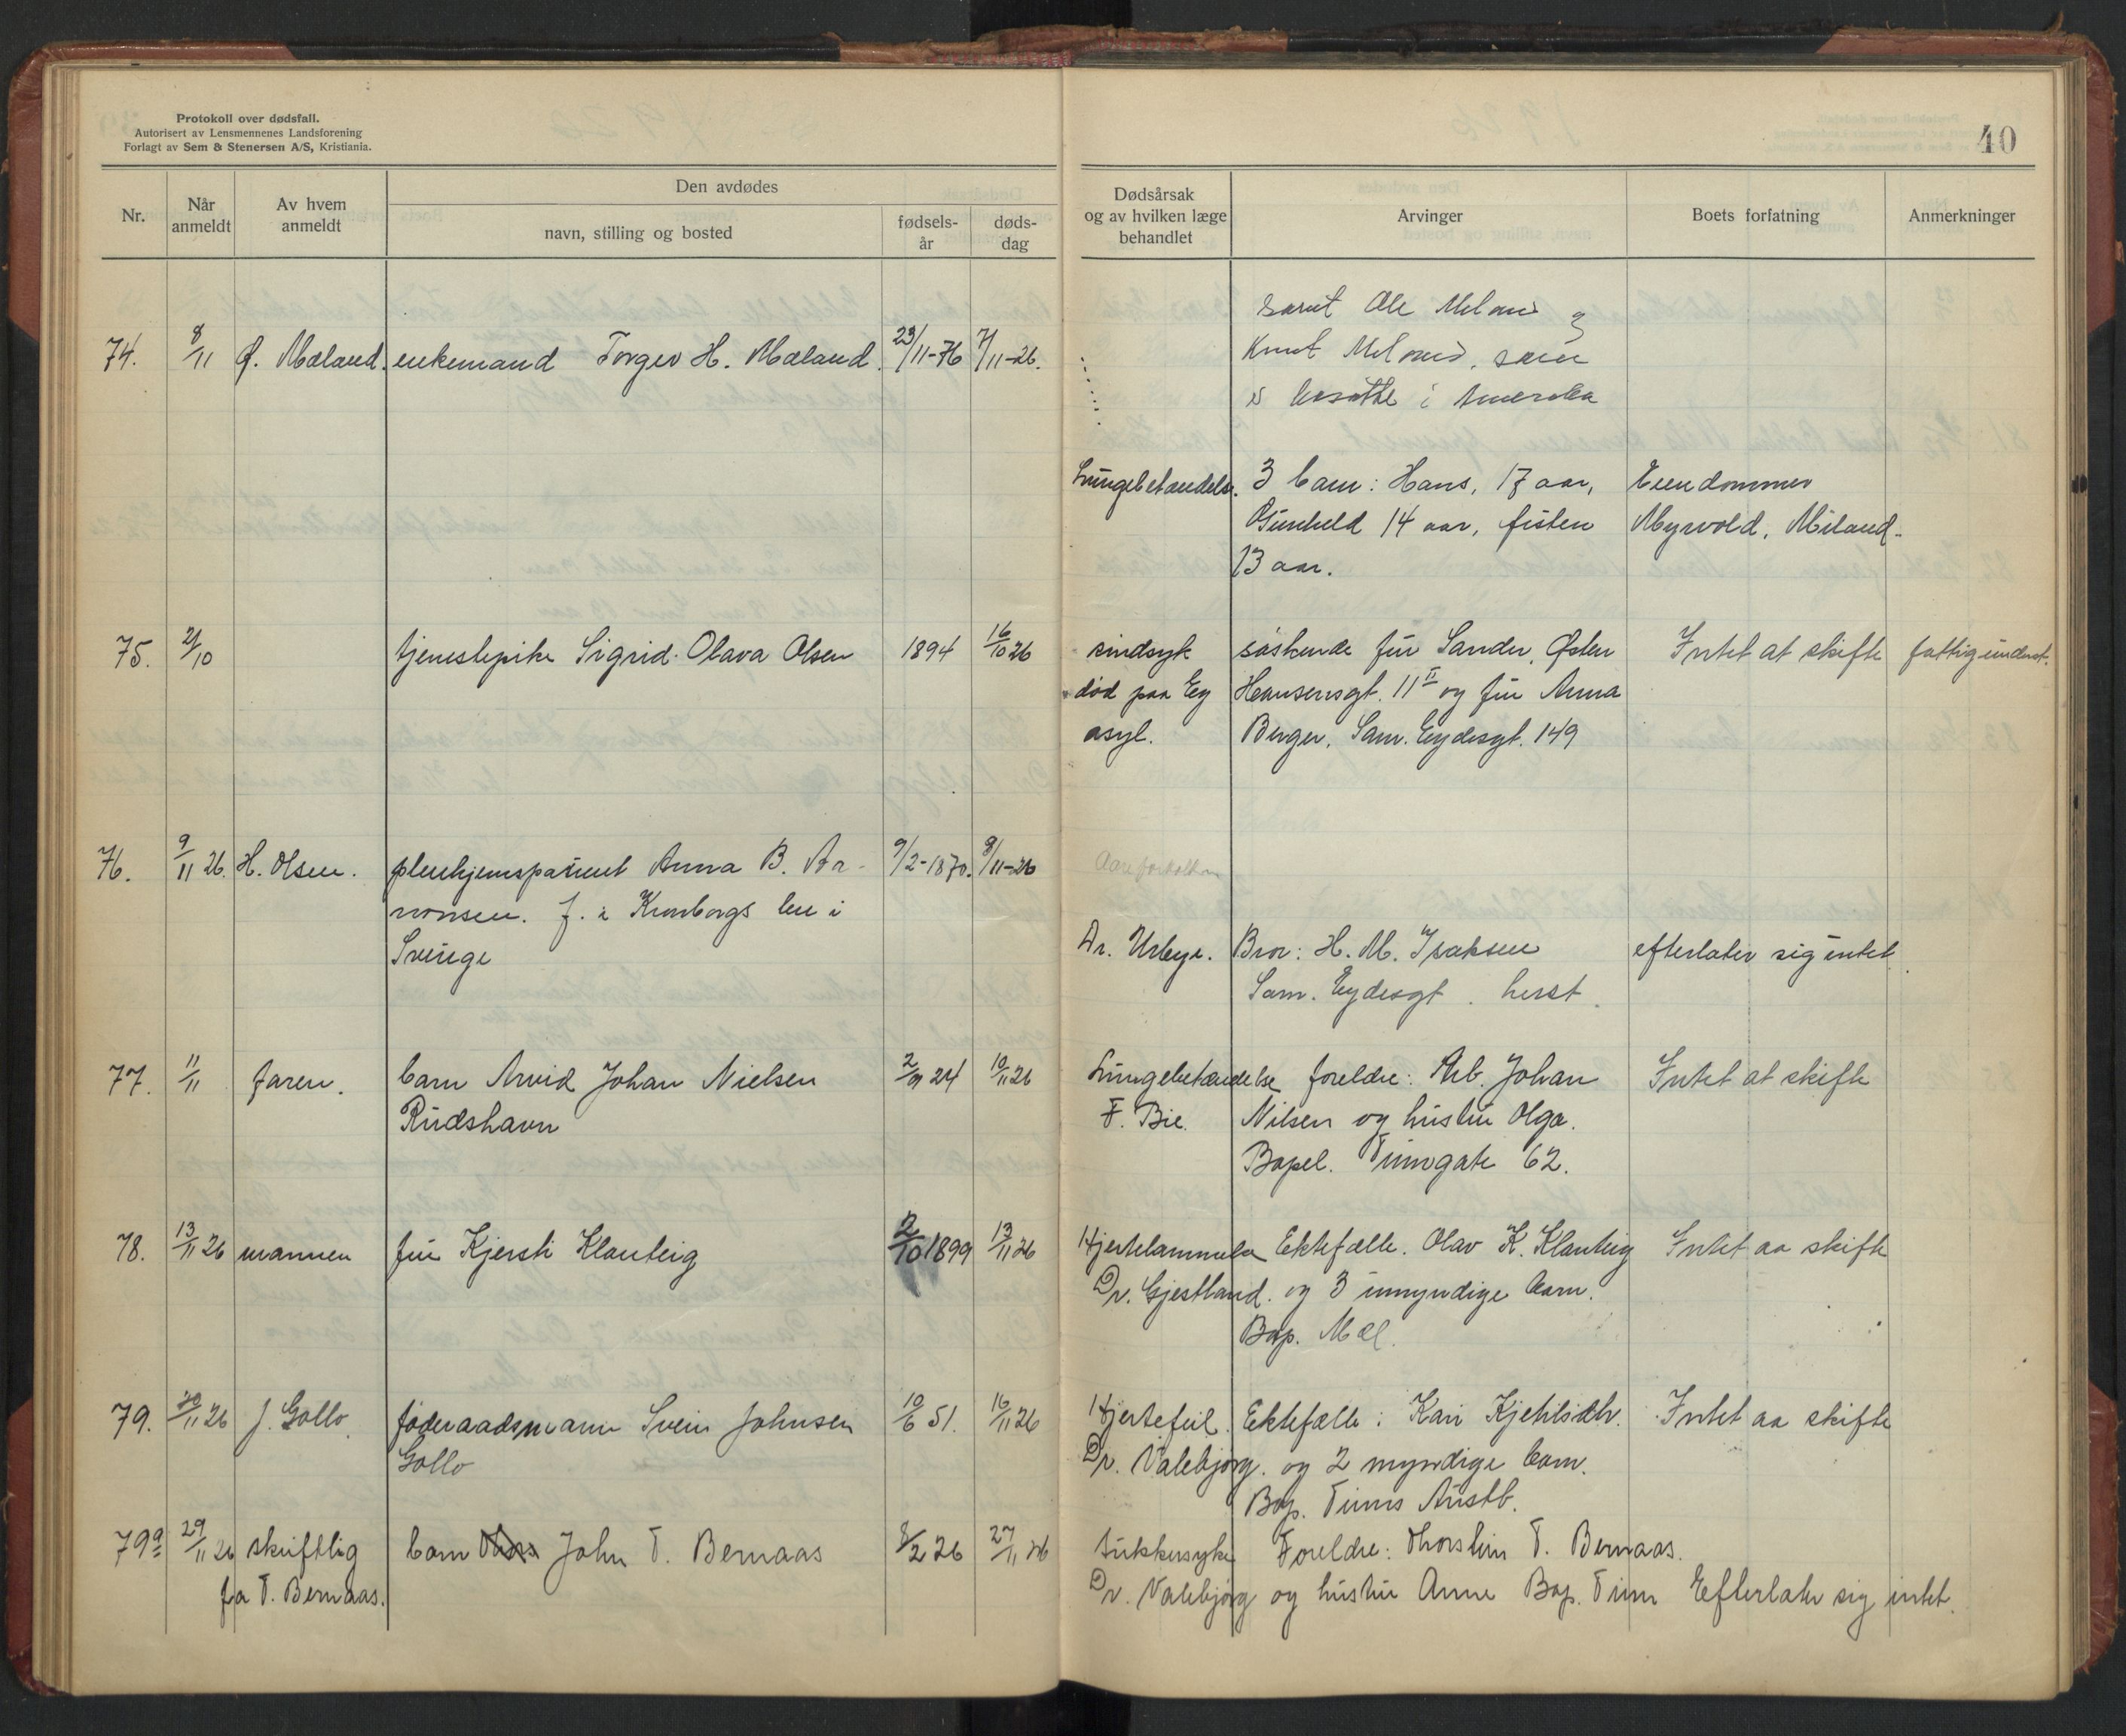 Protokoll over dødsfall.
Autorisert av Lensmennenes Landsforening
Forlagt av Sem & Stenersen A/S, Kristiania.
40
Nr.
Når anmeldt
Av hvem anmeldt
Den avdødes
navn, stilling og bosted
fødsels-år
døds-dag
Dødsårsak og av hvilken læge behandlet
Arvinger
Boets forfatning
Anmerkninger
samt Ole Meland og
Knut Meland, som
er bosatte i Amerika
74. 8/11 Ø. Mæland. enkemand Torger H. Mæland. 23/11-76 7/11-26.
Lungebetændels. 3 barn: Hans, 17 aar, Eiendommer
Gunhild 14 aar, Østen Myrvold, Miland.
13 aar.
75. 21/10 tjenestepike Sigrid Olava Olsen 1894 16/10 26 sindsyk søskende fru Sander, Østen Intet at skifte fattigunderst.
død paa Eg Hansensgt. 11 II og fru Anna
asyl. Berger, Sam. Eydesgt. 149
76. 9/11 26. H. Olsen. pleiehjemspasient Anna B. Aa- 9/2-1870. 8/11-26 Aareforkalkn
ronsen. f. i Kronborgs len i
Sverige Dr. Urbye. Bror: H. M. Isaksen efterlater sig intet
Sam. Eydesgt. herst.
77. 11/11 faren. barn Arvid Johan Nielsen 2/9 24 10/11 26 Lungebetændelse foreldre: Arb. Johan Intet at skifte
Rudshavn F. Bie. Nilsen og hustru Olga.
Bopel. Tinngate 62.
78. 13/11 26 mannen fru Kjersti Klauteig 2/10 1899 13/11 26 Hjertelammelse Ektefælle. Olav K. Klauteig Intet aa skifte
Dr. Gjestland. og 3 umyndige barn.
Bop. Mæl.
79. 20/11 26 J. Gollo. føderaadsmann Svein Johnsen 10/6 51. 16/11 26 Hjertefeil. Ektefælle: Kari Kjetilsdtr. Intet aa skifte
Gollo Dr. Valebjørg. og 2 myndige barn.
Bop. Tinns Austb.
79a 29/11 26 skriftlig barn John T. Bernaas 8/2 26 27/11 26 Sukkersyke Foreldre: Thorstein T. Bernaas.
fra T. Bernaas. Dr. Valebjørg og hustru Anne Bop. Tinn Efterlater sig intet.